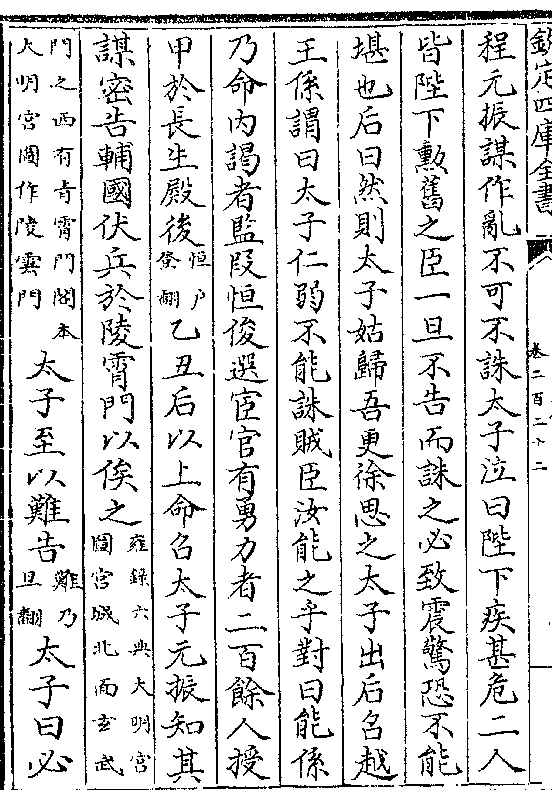 欽定四庫全書
卷二百二十二
程元振謀作亂不可不誅太子泣曰陛下疾甚危二人
皆陛下勲舊之臣一旦不告而誅之必致震驚恐不能
堪也后曰然則太子姑歸吾更徐思之太子出后召越
王係謂曰太子仁弱不能誅賊臣汝能之乎對曰能係
乃命内謁者監叚恒俊選宦官有勇力者二百餘人授
甲於長生殿後恒户登翻乙丑后以上命召太子元振知其
謀密告輔國伏兵於陵霄門以俟之雍録六典大明宫圖宫城北面玄武
門之西有青霄門閣本大明宫圖作陵雲門太子至以難告難乃旦翻太子曰必